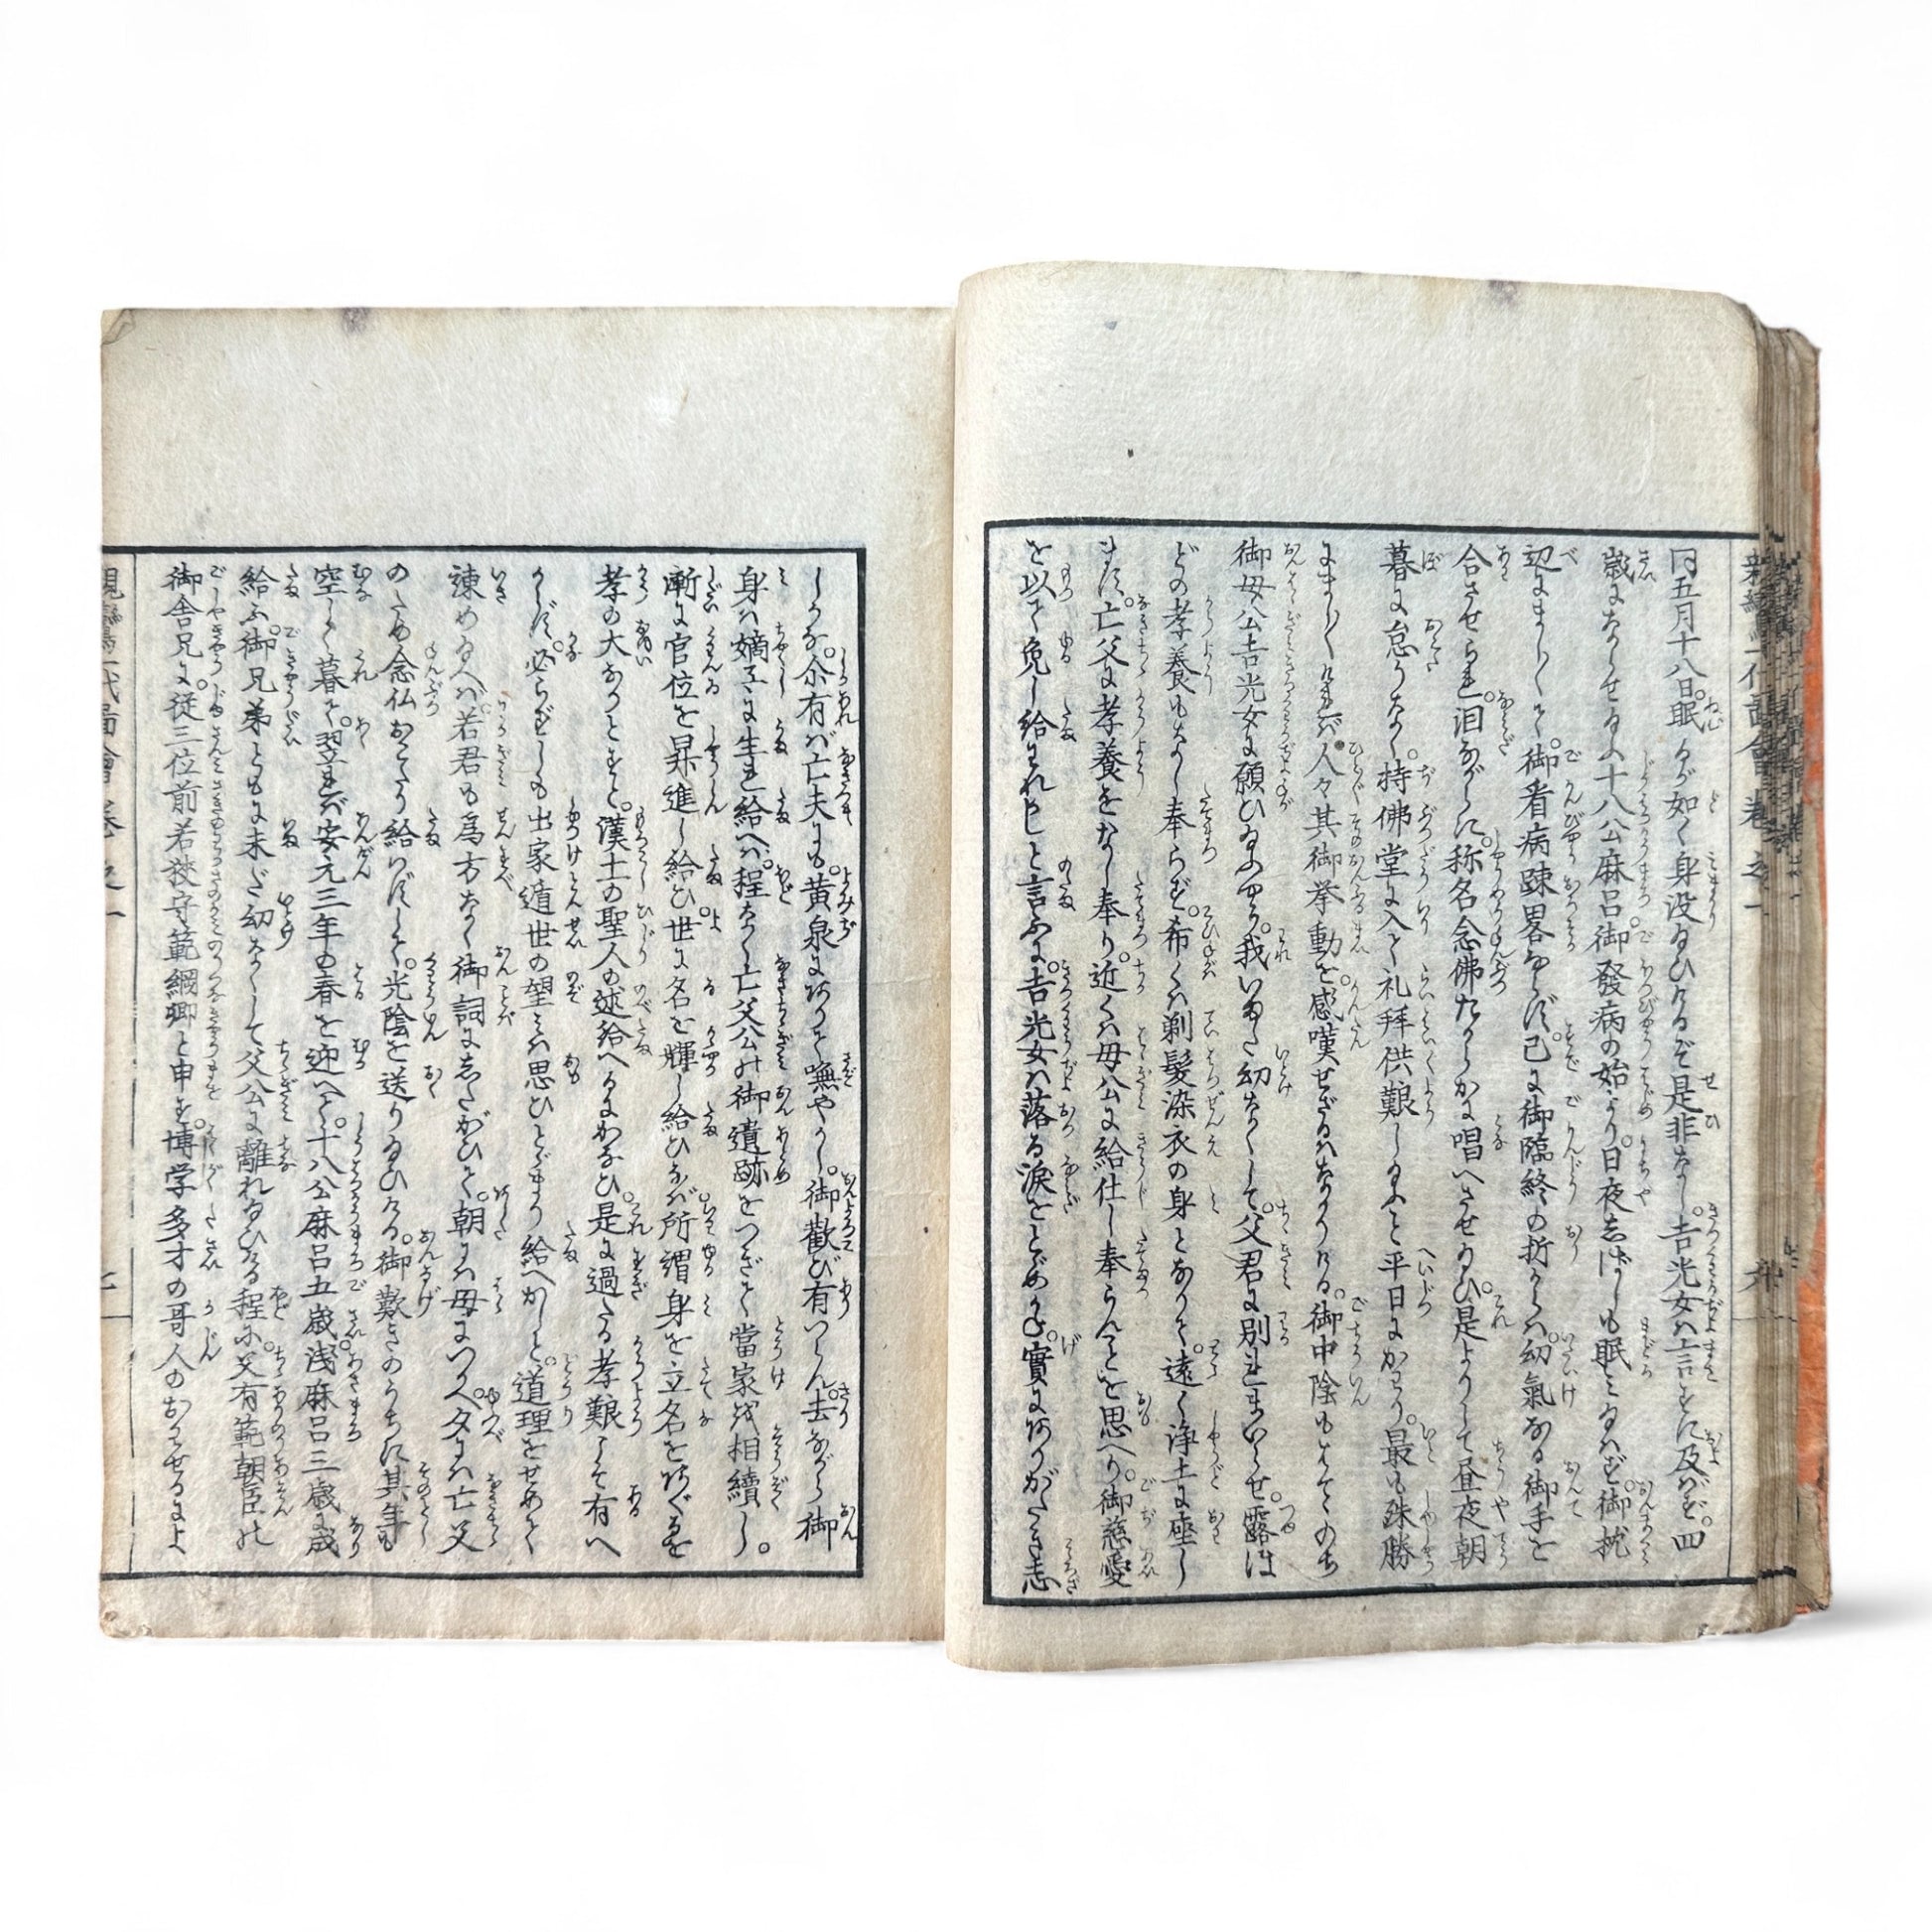 同五月十八日。眠るが如く身没給ひけるぞ是非なし。吉光女は言さに及ばず。四
歳にならせ給ふ十八公麻呂。御發病の始より。日夜志ばしも眠み給はず。御枕
辺にまし〳〵て。御看病踈畧ならず。已に御臨終の折からは。幼氣なる御手を
合させられ。泪ながらに。称名念佛たからかに唱へさせ給ひ。是よりして昼夜朝
暮に怠りなく。持佛堂に入て礼拜供艱し給ふと平日にかはり。最も殊勝
にまし〳〵ければ。人々其御挙動を。感嘆せざるはなかりける。御中陰もはてゝのち
御母公吉光女に願ひ給ふやう。我いまだ幼なくして。父君に別れまいらせ。露ほ
どの孝養もなし奉らず。希くは剃髮染衣の身となりて。遠く浄土に座し
ます。亡父に孝養をなし奉り。近くは母公に給仕し奉らんとぞ思へり。御慈愛
を以て免し給はれかしと言ふに。吉光女は落る涙をとどめかね。實にありがたき志
しかな。尓有ば亡夫にも。黄泉にありて嘸やかし。御歡び有つらん。去ながら御
身は嫡子に生れ給へば。程なく亡父公の御遺跡をつぎて。當家を相續し。
漸に官位を昇進し給ひ。世に名を輝し給ひなば。所謂身を立名をあぐるを
孝の大なりとすと。漢土の聖人の述給へるにかなひ。是に過たる孝艱して有へ
からず。必らずしも出家遁世の望みは思ひとどまり給へかしと。道理をせめて
諌め給へば。若君も爲方なく御詞に志たがひて。朝には母につかへ。夕には亡父
のため念仏おこたり給はずして。光陰を送り給ひける。御歎きのうちに其年も
空しく暮て。翌れば安元三年の春を迎へて。十八公麻呂五歳。浅麻呂三歳に成
給ふ。御兄弟ともに未だ幼なくして父公に離れ給ひける程に。父有範朝臣の
御舎兄に。従三位前若狹守範綱卿と申す。博学多才の哥人のおはせるによ